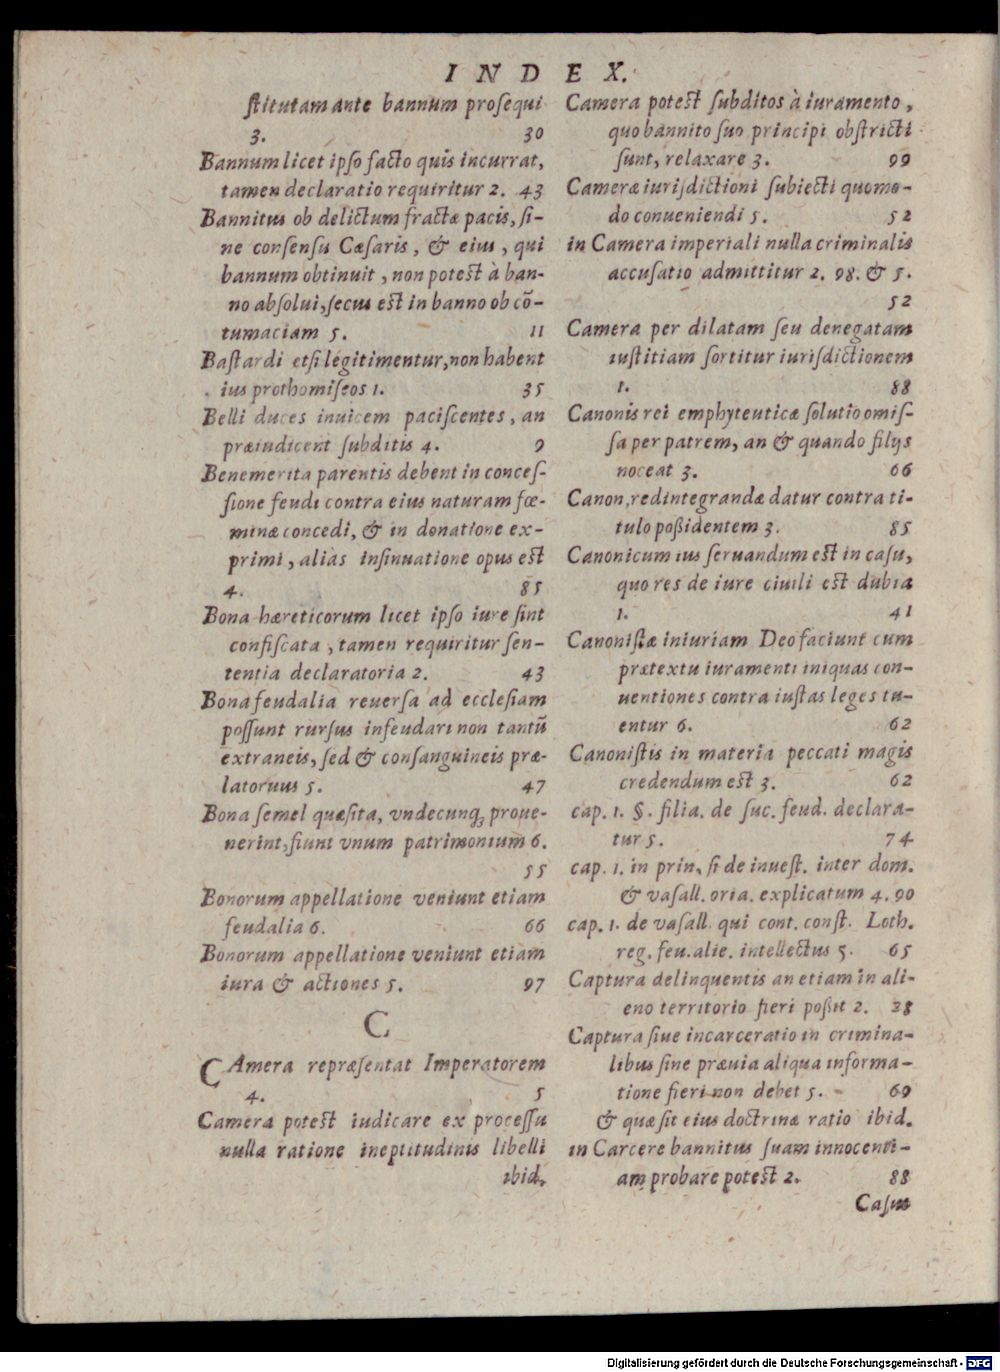 INDEX.
ſtitutam ante bannum proſequi
3. 30
Bannum licet ipſo facto quis incurrat,
tamen declaratio requiritur 2. 43
Bannitus ob delictum fractæ pacis, ſi-
ne conſenſu Cæſaris, & eius, qui
bannum obtinuit, non poteſt à ban-
no abſolui, ſecus eſt in banno ob cõ-
tumaciam 5. 11
Baſtardi etſi legitimentur, non habent
ius prothomiſeos 1. 35
Belli duces inuicem paciſcentes, an
præiudicent ſubditis 4. 9
Benemerita parentis debent in conceſ-
ſione feudi contra eius naturam fœ-
minæ concedi, & in donatione ex-
primi, alias inſinuatione opus eſt
4. 85
Bona hæreticorum licet ipſo iure ſint
confiſcata, tamen requiritur ſen-
tentia declaratoria 2. 43
Bona feudalia reuerſa ad eccleſiam
poſſunt rurſus infeudari non tantũ
extraneis, ſed & conſanguineis præ-
latoruus 5. 47
Bona ſemel quæſita, vndecunq; proue-
nerint, fiunt vnum patrimonium 6.
55
Bonorum appellatione veniunt etiam
feudalia 6. 66
Bonorum appellatione veniunt etiam
iura & actiones 5. 97
C
CAmera repræſentat Imperatorem
4. 5
Camera poteſt iudicare ex proceſſu
nulla ratione ineptitudinis libelli
ibid.
Camera poteſt ſubditos à iuramento,
quo bannito ſuo principi obſtricti
ſunt, relaxare 3. 99
Cameræ iuriſdictioni ſubiecti quomo-
do conueniendi 5. 52
in Camera imperiali nulla criminalis
accuſatio admittitur 2. 98. & 5.
52
Camera per dilatam ſeu denegatam
iuſtitiam ſortitur iuriſdictionem
1. 88
Canonis rei emphyteuticæ ſolutio omiſ-
ſa per patrem, an & quando filijs
noceat 3. 66
Canon, redintegrandæ datur contra ti-
tulo poßidentem 3. 85
Canonicum ius ſeruandum eſt in caſu,
quo res de iure ciuili eſt dubia
1. 41
Canoniſtæ iniuriam Deo faciunt cum
prætextu iuramenti iniquas con-
uentiones contra iuſtas leges tu-
entur 6. 62
Canoniſtis in materia peccati magis
credendum eſt 3. 62
cap. 1. §. filia. de ſuc. feud. declara-
tur 5. 74
cap. 1. in prin. ſi de inueſt. inter dom.
& vaſall. oria. explicatum 4. 90
cap. 1. de vaſall. qui cont. conſt. Loth.
reg. feu. alie. intellectus 5. 65
Captura delinquentis an etiam in ali-
eno territorio fieri poßit 2. 28
Captura ſiue incarceratio in crimina-
libus ſine præuia aliqua informa-
tione fieri non debet 5. 69
& quæ ſit eius doctrinæ ratio ibid.
in Carcere bannitus ſuam innocenti-
am probare poteſt 2. 88
Caſus
Digitalisierung gefördert durch die Deutsche Forschungsgemeinschaft - DFG